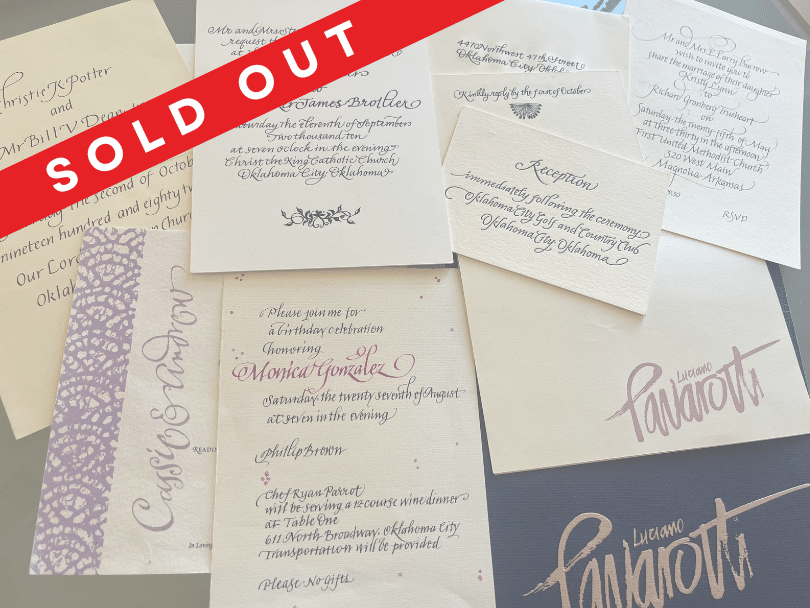 SOLD OUT
Christie K Potter
and
Mr Bill V Dean
the second of October
nineteen hundred and eighty
Church
Our Lord
Okla
Mr and Mrs
request the
at
James Brollier
Saturday the eleventh of September
Two thousand ten
at seven o'clock in the evening
Christ the King Catholic Church
Oklahoma City, Oklahoma
4470 Northwest 47th Street
Oklahoma City, Oklahoma
Kindly reply by the first of October
Mr and Mrs E Larry
wish to invite you to
share the marriage of their daughter
Kristy Lynn
to
Richard Grantery Trueheart
Saturday, the twenty fifth of May
at three thirty in the afternoon
First United Methodist Church
320 West Main
Magnolia, Arkansas
RSVP
Reception
immediately following the ceremony
Oklahoma City Golf and Country Club
Oklahoma City, Oklahoma
Cassie & Andrew
In Loving
Please join me for
a birthday celebration
honoring
Monica Gonzalez
Saturday, the twenty seventh of August
at seven in the evening
Phillip Brown
Chef Ryan Parrot
will be serving a 12 course wine dinner
at Table One
611 North Broadway, Oklahoma City
Transportation will be provided
Please No gifts
Luciano
Pavarotti
Luciano
Pavarotti